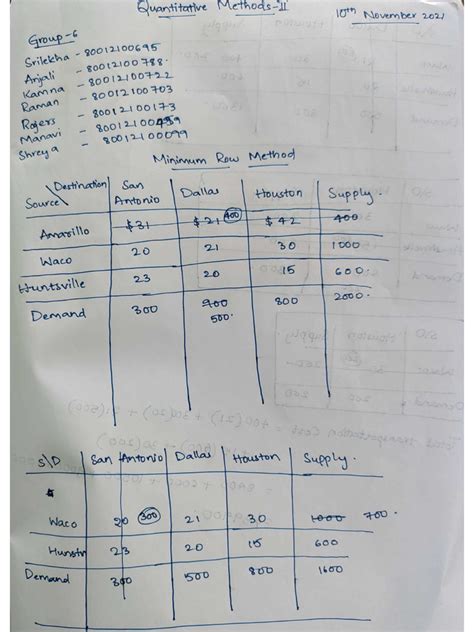 Quantitative Methods-II
10th November 2021
Group-6
Srilekha - 80012100695
Anjali - 80012100788
Kamna - 80012100722
Raman - 80012100703
Rogers - 80012100173
Manavi - 80012100459
Shreya - 80012100099
Minimum Row Method
Destination San Antonio Dallas Houston Supply.
Source
Amarillo $31 $21 400 $42 400
Waco 20 21 30 1000
Huntsville 23 20 15 600
Demand 300 900 800 2000.
500.
S\D San Antonio Dallas Houston Supply.
Waco 20 300 21 30 1000 700.
Hunstn 23 20 15 600
Demand 300 500 800 1600